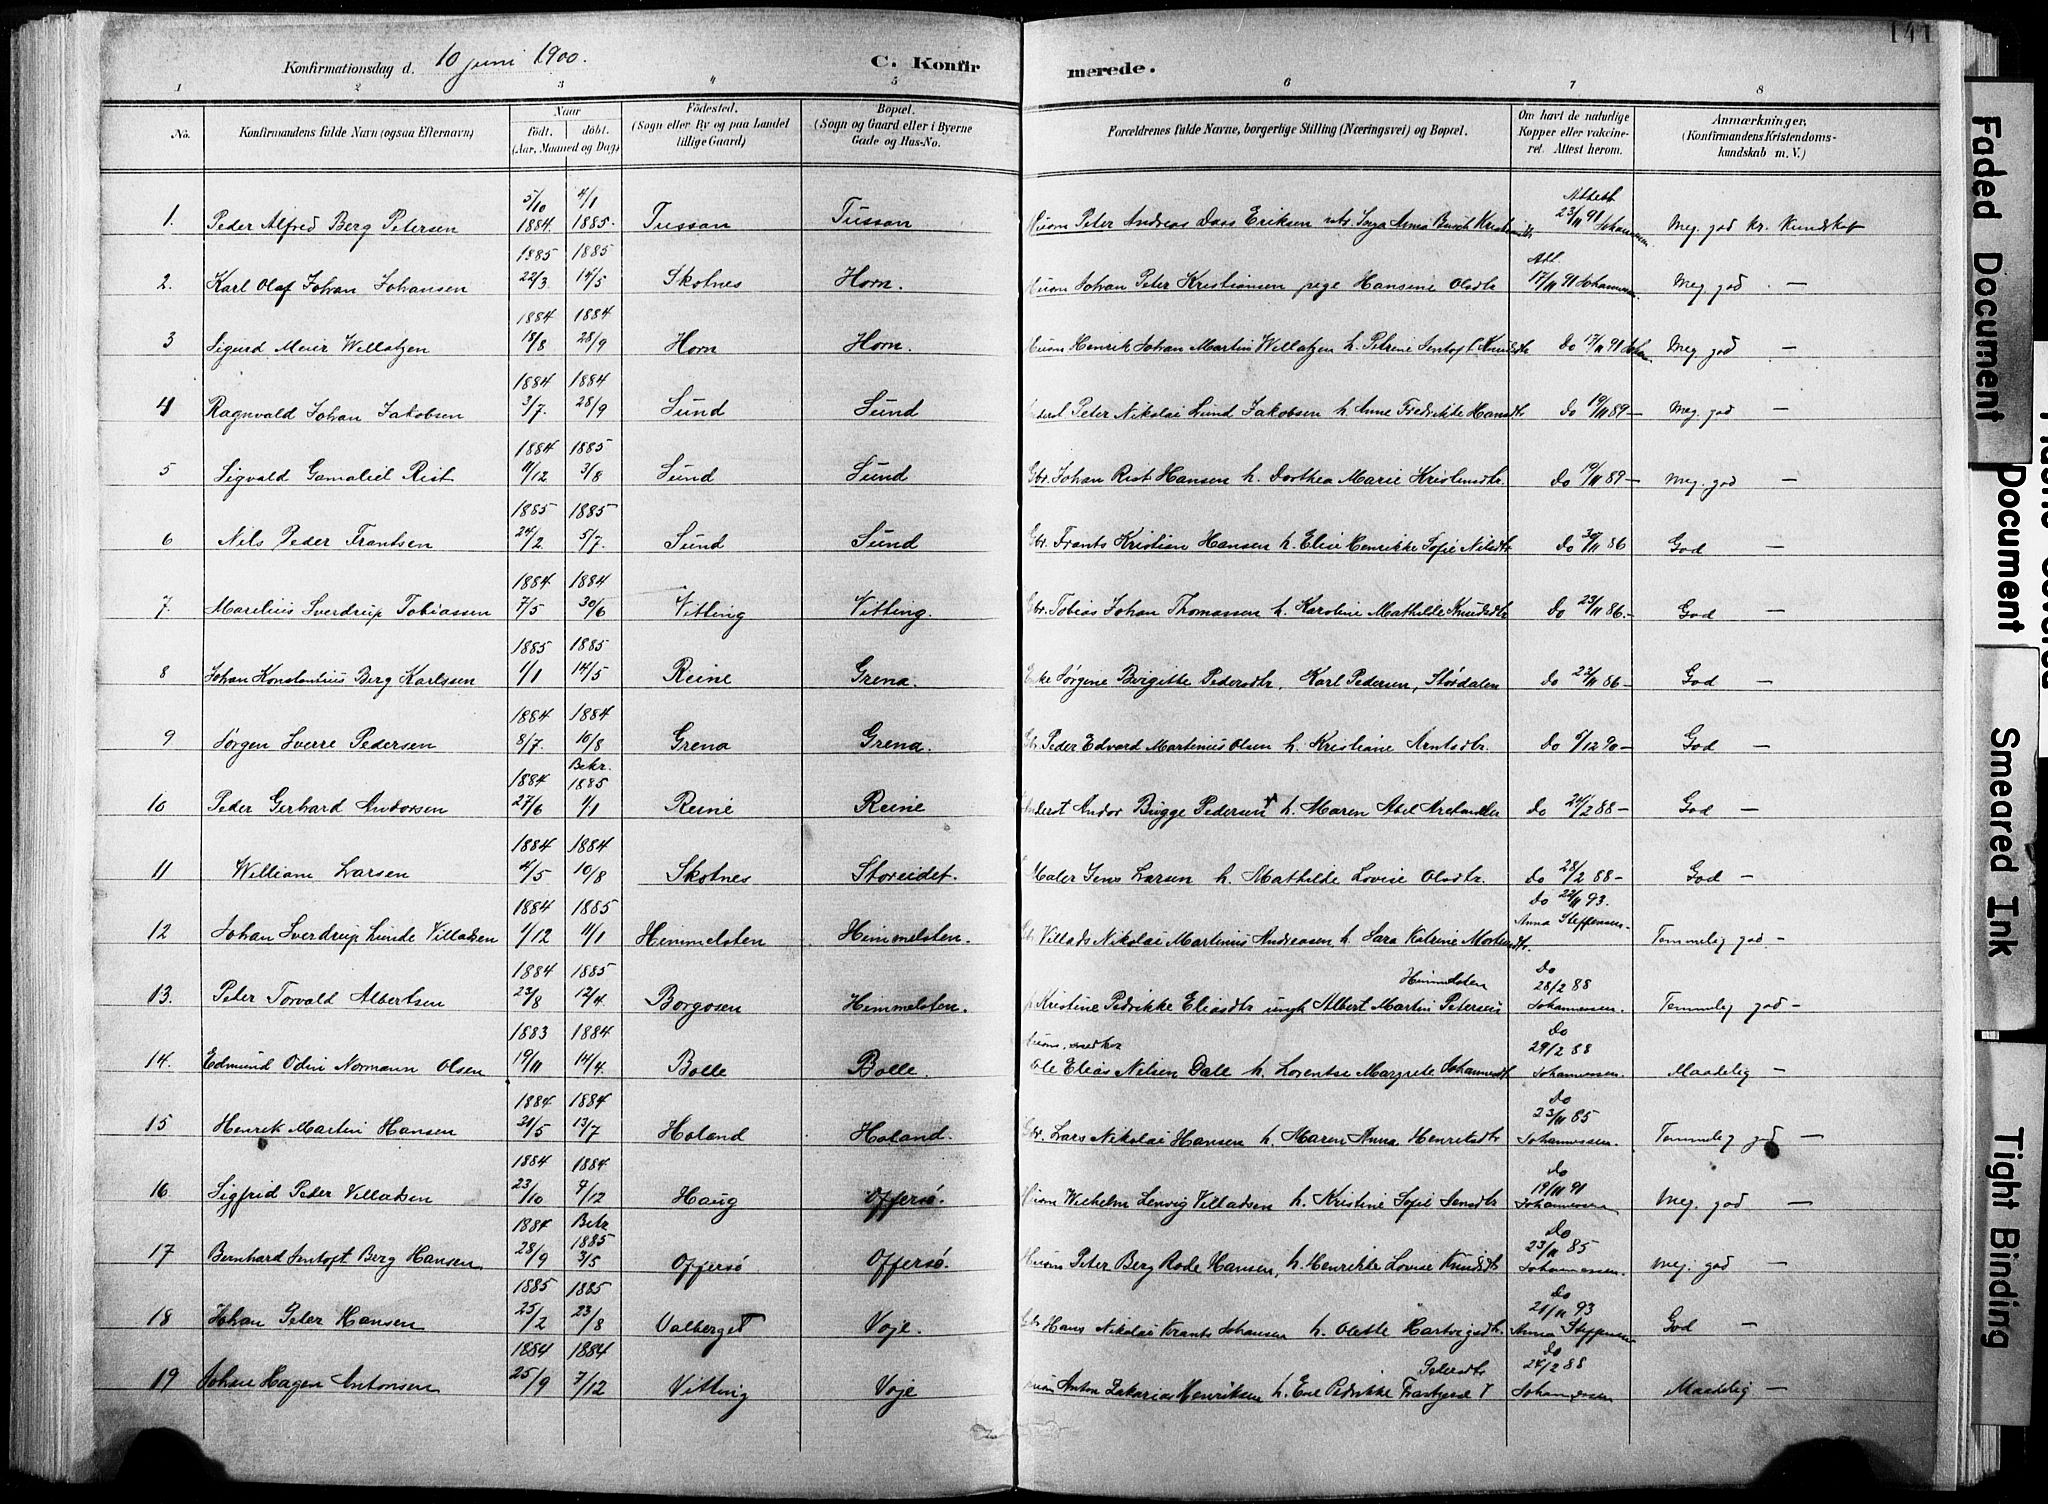 141
Konfirmationsdag d. 10 juni 1900.
C. Konfirmerede.
1 2 3 4 5 6 7 8
No. Konfirmandens fulde Navn (ogsaa Efternavn) Naar født. døbt. (Aar, Maaned og Dag) Fødested. (Sogn eller By og paa Landet tillige Gaard) Bopæl. (Sogn og Gaard eller i Byerne Gade og Hus-No. Forældrenes fulde Navne, borgerlige Stilling (Næringsvei) og Bopæl. Om havt de naturlige Kopper eller vakcineret. Attest herom. Anmærkninger, (Konfirmandens Kristendomskundskab m. V.)
1. Peder Alfred Berg Petersen 5/10 1884. 4/1 1885. Tussan Tussan Peter Andreas Dass Eriksen Inga Anna Attest 23/11 91 Johannessen Meg. god kr. Kundskab
2. Karl Olaf Johan Johansen 1885 22/3. 1885 14/5 Skotnes Horn. Johan Peter Kristiansen pige Hansine Olsdtr Att. 17/11 91 Johannessen Meg. god —
3 Sigurd Meier Willatzen 1884 18/8 1884 28/9 Horn Horn. Henrik Johan Martin Willatzen h. Petrine Jentoft Knudsdtr Do 17/11 91 Meg. god —
4 Ragnvald Johan Jakobsen 1884 3/7. 1884 28/9 Sund Sund Peter Nikolai Lund Jakobsen h. Anne Fredrikke Hansdtr Do 19/11 89 — Meg. god —
5 Sigvald Gamaliel Rist 1884 11/12 1885 3/8 Sund Sund Gbr. Johan Rist Hansen h. Dorthea Marie Kristensdtr. Do 19/11 89 — Meg. god —
6 Nils Peder Frantsen 1885 24/2 1885 5/7. Sund Sund Gbr. Frants Kristian Hansen h. Elise Henrikke Sofie Nilsdtr Do 30/11 86 God —
7. Marelius Sverdrup Tobiassen 1884 7/5 1884 30/6 Vitting Vitting. Gbr. Tobias Johan Thomassen h. Karoline Mathilde Knudsdtr Do 23/11 86. — God —
8 Johan Konstantius Berg Karlssen 1885 1/1 1885 14/5 Reine Grena. Enke Jørgine Birgitte Pedersdtr, Karl Pedersen, Stordalen Do 23/11 86 — God —
9 Jørgen Sverre Pedersen 1884 8/7. 1884 10/8 Grena Grena. Gbr. Peder Edvard Martinius Olsen h. Kristiane Arntsdtr. Do 5/12 90 — God —
10 Peder Gerhard Andorsen 1884 27/6 Bekr. 1885 1/1 Reine Reine Inderst Andor Bugge Pedersen h. Maren Abel Do 24/2 88 — God —
11 William Larsen 1884 4/5 1884 10/8 Skotnes Storeidet. Maler Jens Larsen h. Mathilde Lovise Olsdtr. Do 28/2 88 — God —
12 Johan Sverdrup Lunde Villadsen 1884 1/12 1885 11/1 Himmelsten Himmelsten. Gbr. Villads Nikolai Martinius Andreasen h. Sara Katrine Do 22/11 93. Anna Steffensen. Temmelig god —
13. Peter Torvald Albertsen 1884 23/8 1885 12/4. Borgosen Himmelsten. Kristine Pedrikke Eliasdtr ungk Albert Martin Petersen Himmelsten Do 28/2 88 Johannessen. Temmelig god —
14. Edmund Odin Normann Olsen 1883 19/11 1884 14/4. Bolle Bolle. Ole Elias Nilsen Dall h. Lorentse Margrete Johannesdtr Do 29/2 88 Johannessen. Maadelig —
15 Henrik Martin Hansen 1884 21/5 1884 13/7 Holand Holand. Gbr. Lars Nikolai Hansen h. Maren Anna Henriksdtr Do 23/11 85 Johannessen. Temmelig god —
16 Sigfrid Peter Villadsen 1884 23/10 1884 7/12 Haug Offersø. Wilhelm Lervig Villadsen h. Kristine Sofie Jensdtr Do 19/11 91 Johannessen Meg. god —
17 Bernhard Jentoft Berg Hansen 1884 28/9 Bekr 1885 3/5 Offersø Offersø. Peter Berg Rode Hansen, h. Henrikke Lovise Knudsdtr Do 23/11 85 Johannessen. Meg. god —
18 Johan Peter Hansen 1885 25/2 1885 23/8 Valberget Voje. Gbr Hans Nikolai Krants Johansen h. Olette Hartvigsdtr. Do 21/11 93 Anna Steffensen God —
19 Johan Hagen Antonsen 1884 25/9 1884 7/12 Vitting Voje Anton Zakarias Henriksen h. Ene Pedrikke Pedersdtr Do 24/2 88 Johannessen Maadelig —
Faded Document
Document
Smeared Ink
Tight Binding